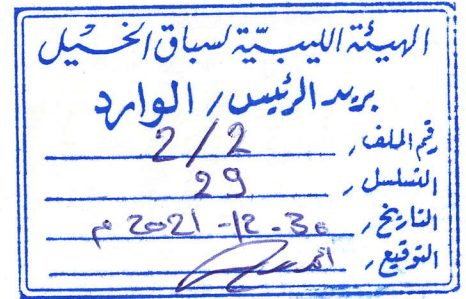 الهيئة الليبيّة لسباق الخيل
بريد الرئيس / الوارد
رقم الملف / 2/2
التسلسل / 29
التاريخ / 30-12-2021 م
التوقيع /